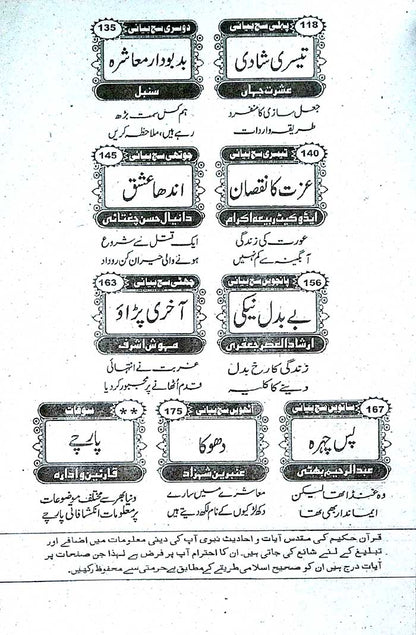 118
پہلی سچ بیانی
تیسری شادی
عشرت جہاں
جعل سازی کا منفرد
طریقہ واردات
135
دوسری سچ بیانی
بدبودار معاشرہ
سنبل
ہم کس سمت بڑھ
رہے ہیں، ملاحظہ کریں
140
تیسری سچ بیانی
عزت کا نقصان
ایڈوکیٹ ربیعہ اکرام
عورت کی زندگی
آبگینہ سے کم نہیں
145
چوتھی سچ بیانی
اندھا عشق
دانیال حسن چغتائی
ایک قتل سے شروع
ہونے والی حیران کن روداد
156
پانچویں سچ بیانی
بے بدل نیکی
ارشاد العصر جعفری
زندگی کا رخ بدل
دینے کا کلیہ
163
چھٹی سچ بیانی
آخری پڑاؤ
مہوش اشرف
غربت نے انتہائی
قدم اُٹھانے پر مجبور کر دیا
167
ساتویں سچ بیانی
پس چہرہ
عبدالرحیم بھٹی
وہ غنڈا تھا لیکن
ایماندار بھی تھا
175
آٹھویں سچ بیانی
دھوکا
عنبرین شہزاد
معاشرے میں سارے
دکھ لڑکیوں کے نام لکھ دیتے ہیں
**
متفرقات
پارچے
قارئین و ادارہ
دنیا بھر سے مختلف موضوعات
پر معلومات انکشافاتی پارچے
قرآن حکیم کی مقدس آیات و احادیث نبوی آپ کی دینی معلومات میں اضافے اور
تبلیغ کے لئے شائع کی جاتی ہیں۔ ان کا احترام آپ پر فرض ہے لہٰذا جن صفحات پر
آیات درج ہیں ان کو صحیح اسلامی طریقے کے مطابق بے حرمتی سے محفوظ رکھیں۔